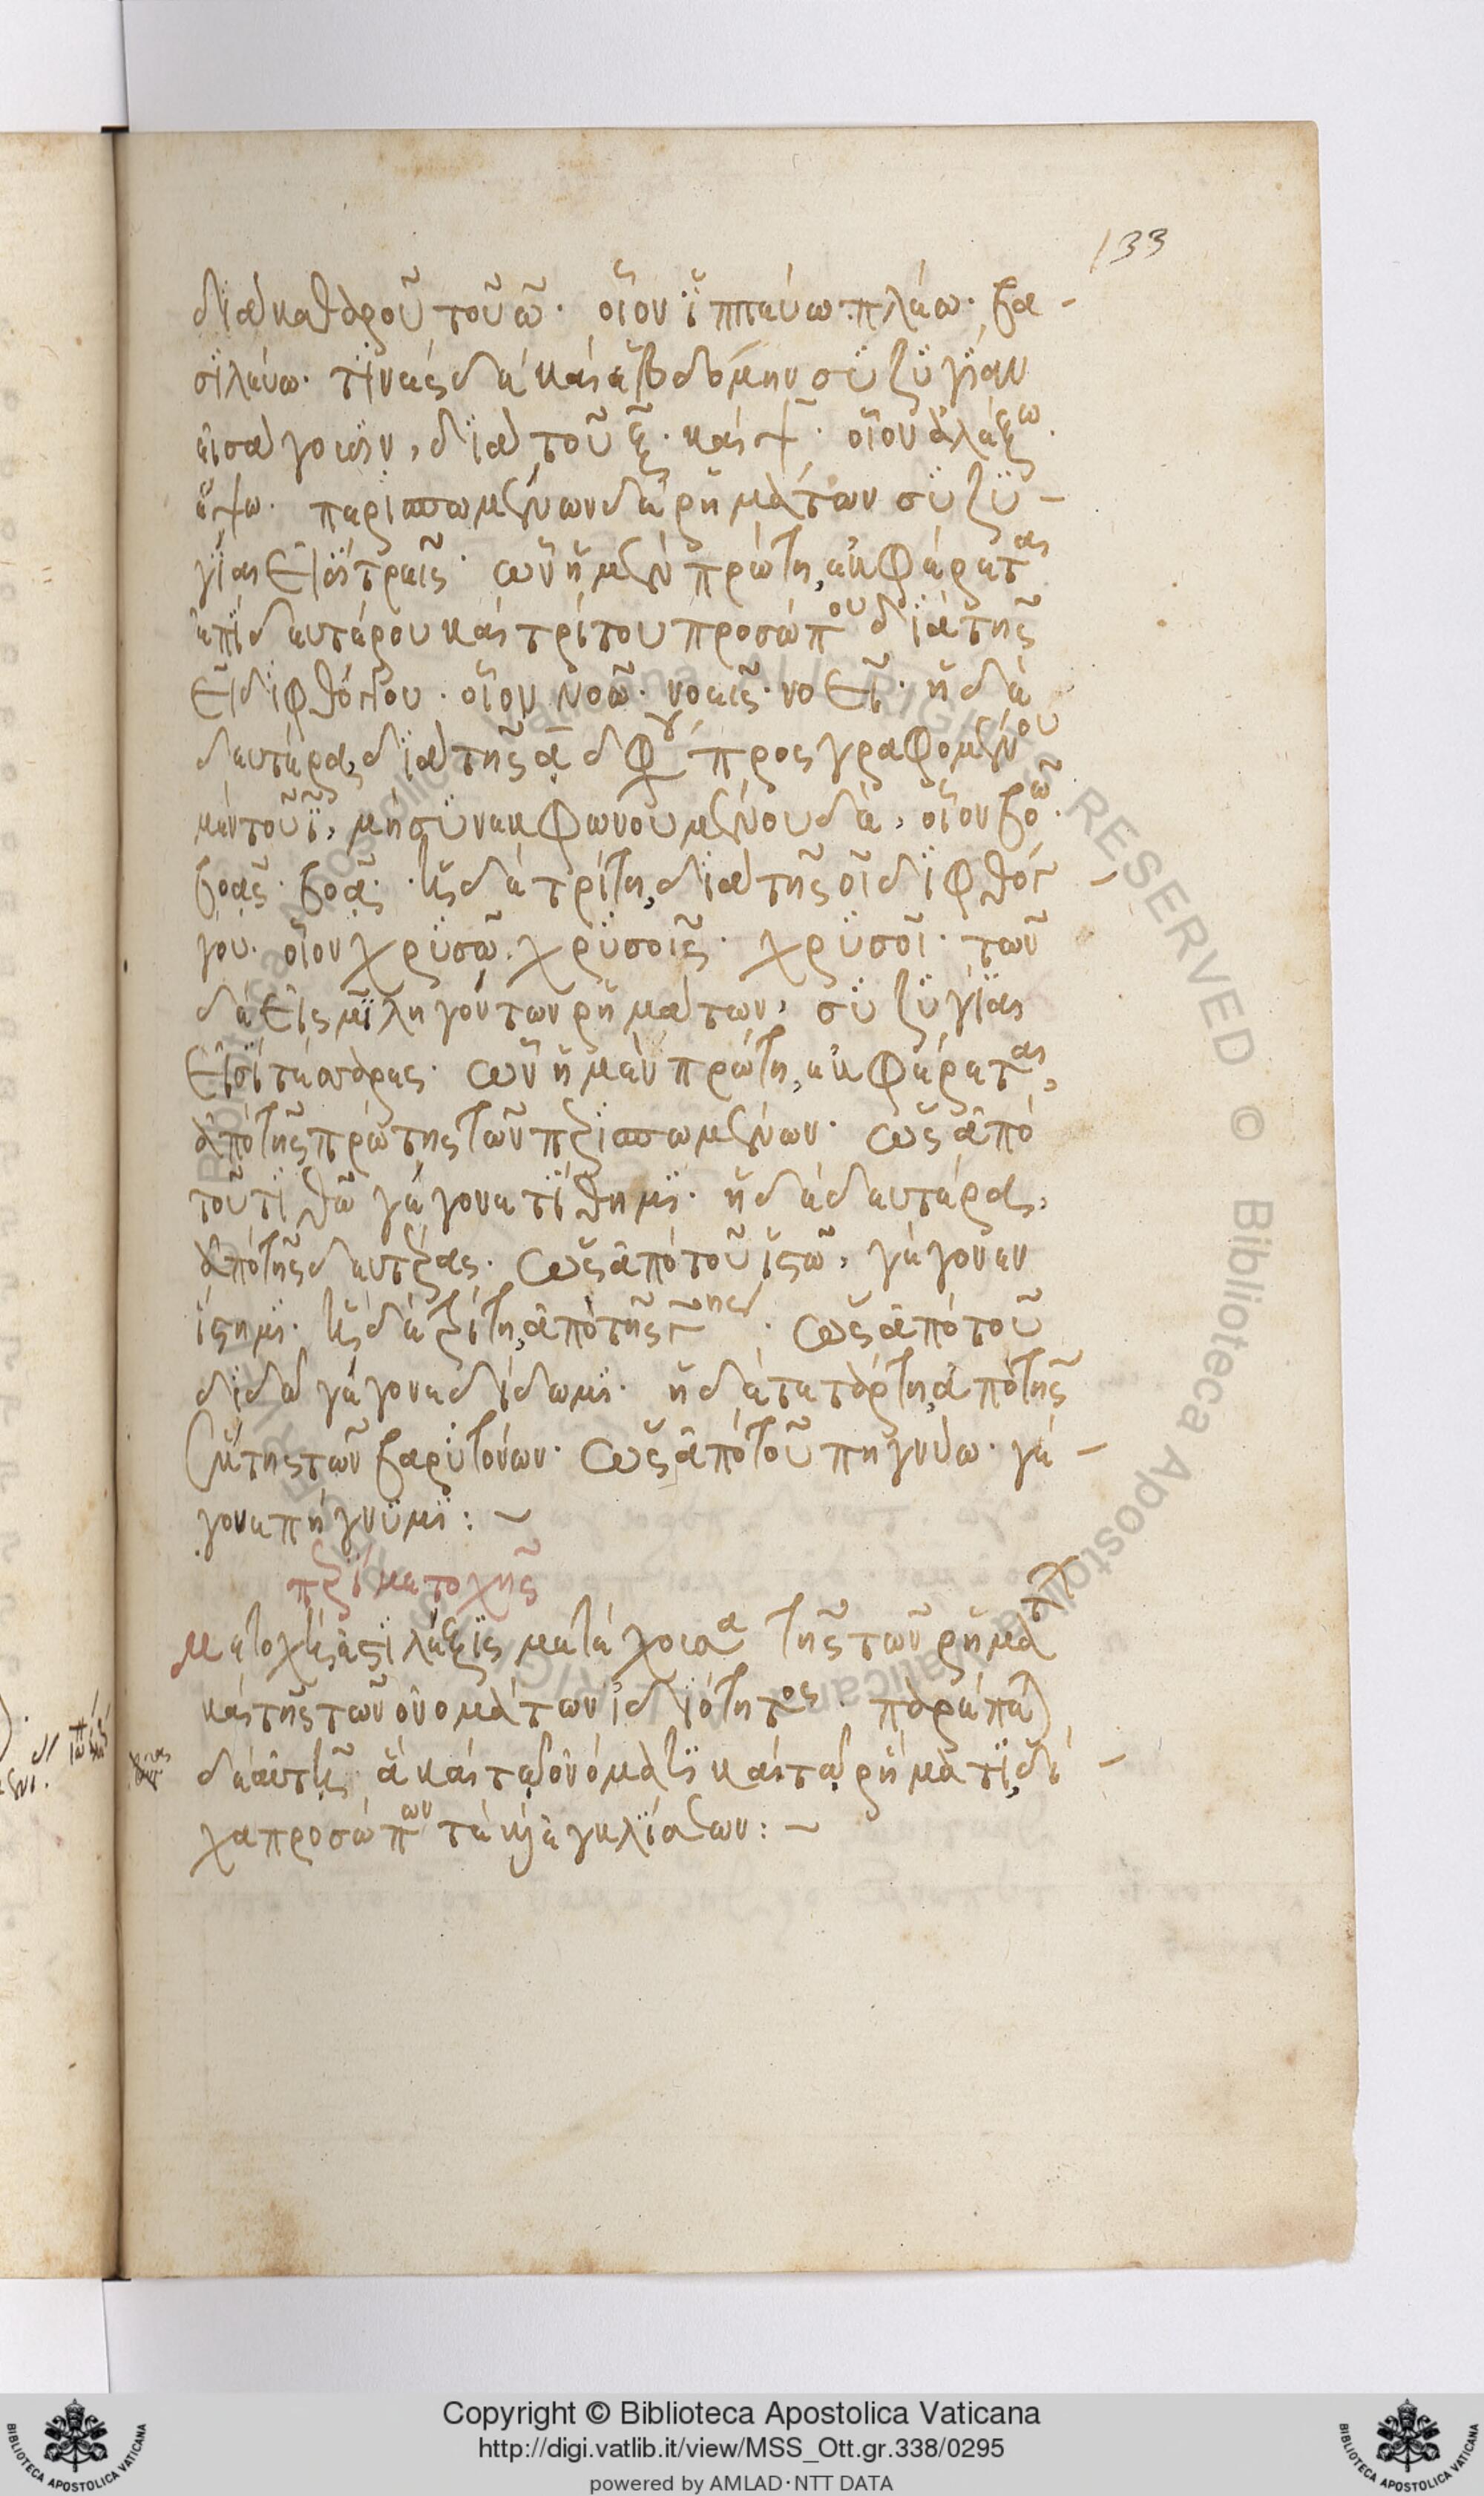 133
διὰ καθαροῦ τοῦ ω̄. οἷον ἱππεύω. πλέω. βα-
σιλεύω. τινὲς δὲ καὶ ἑβδόμην συζυγίαν
εἰσάγουσιν, διὰ τοῦ ξ̄. καὶ ψ̄. οἷον ἀλέξω.
ἕψω. περισπωμένων δὲ ῥημάτων συζυ-
γίαι εἰσὶ τρεῖς. ὧν ἡ μὲν πρώτη, ἐκφέρεται
ἐπὶ δευτέρου καὶ τρίτου προσώπου διὰ τῆς
ει διφθόγγου. οἷον νοῶ. νοεῖς. νοεῖ. ἡ δὲ
δευτέρα, διὰ τῆς ᾱ δφγγ προσγραφομένου
μὲν τοῦ ῑ, μὴ συνεκφωνουμένου δὲ, οἷον βοῶ.
βοᾷς. βοᾷ. ἡ δὲ τρίτη, διὰ τῆς οι διφθόγ-
γου. οἷον χρυσῶ. χρυσοῖς. χρυσοῖ. τῶν
δὲ εἰς μῑ ληγόντων ῥημάτων, συζυγίαι
εἰσὶ τέσσαρες. ὧν ἡ μὲν πρώτη, ἐκφέρεται,
ἀπὸ τῆς πρώτης τῶν περισπωμένων. ὡς ἀπὸ
τοῦ τιθῶ γέγονε τίθημι. ἡ δὲ δευτέρα,
ἀπὸ τῆς δευτέρας. ὡς ἀπὸ τοῦ ἱστῶ, γέγονεν
ἵστημι. ἡ δὲ τρίτη, ἀπὸ τῆς γ̄ης. ὡς ἀπὸ τοῦ
διδῶ γέγονε δίδωμι. ἡ δὲ τετάρτη, ἀπὸ τῆς
ἕκτης τῶν βαρυτόνων. ὡς ἀπὸ τοῦ πηγνύω. γέ-
γονε πήγνυμι: ~
περὶ μετοχῆς
Μετοχή ἐστι λέξις μετέχουσα τῆς τῶν ῥημάτ
καὶ τῆς τῶν ὀνομάτων ἰδιότητος. παρέπεται
δὲ αὐτῇ ἃ καὶ τῷ ὀνόματι καὶ τῷ ῥήματι, δί-
χα προσώπων τε καὶ ἐγκλίσεων: ~
Copyright © Biblioteca Apostolica Vaticana
http://digi.vatlib.it/view/MSS_Ott.gr.338/0295
powered by AMLAD·NTT DATA
BIBLIOTECA APOSTOLICA VATICANA
BIBLIOTECA APOSTOLICA VATICANA